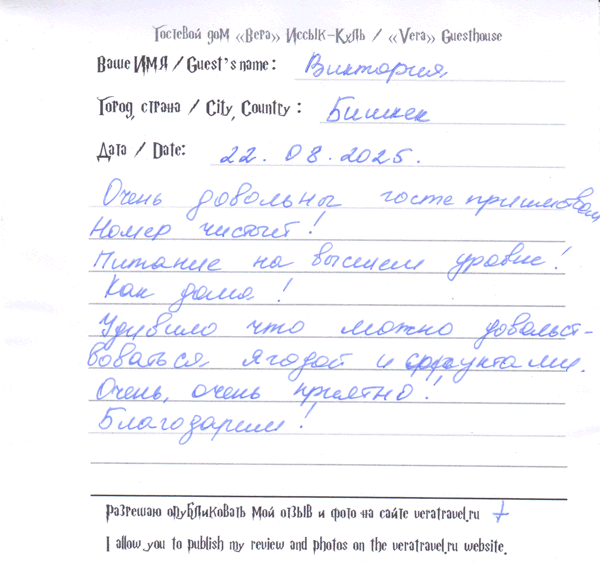 Гостевой дом «Вера» Иссык-Куль / «Vera» Guesthouse
Ваше ИМЯ / Guest's name: Виктория
Город, страна / City, Country: Бишкек
Дата / Date: 22.08.2025.
Очень довольны гостеприимством
Номер чистый!
Питание на высшем уровне!
Как дома!
Удивило что можно довольст-
воваться ягодой и фруктами.
Очень, очень приятно!
Благодарим!
Разрешаю опубликовать мой отзыв и фото на сайте veratravel.ru +
I allow you to publish my review and photos on the veratravel.ru website.